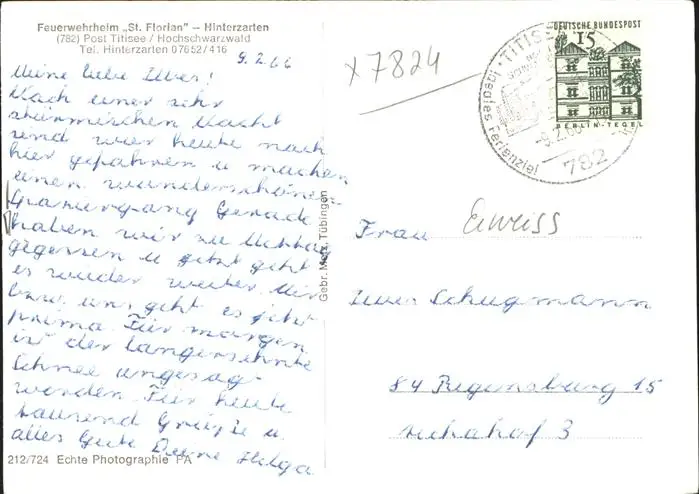 Feuerwehrheim „St. Florian" – Hinterzarten
(782) Post Titisee / Hochschwarzwald
Tel. Hinterzarten 07652/416
9.2.66
Meine liebe
Nach einer sehr
stürmischen Nacht
sind wir heute nach
hier gefahren u machen
einen wunderschönen
Gerade
haben wir zu Mittag
gegessen u jetzt geht
es wieder weiter. Mir
bzw. uns geht es jetzt
prima. Für morgen
ist der langersehnte
Schnee angesag-
worden. Für heute
tausend Grüße u.
alles Gute Deine Helga
212/724 Echte Photographie PA
Gebr. Metz, Tübingen
x7824
TITISEE
Ideales Ferienziel
-9.2.66
782
DEUTSCHE BUNDESPOST
15
BERLIN-TEGEL
Frau
Schugmann
84 Regensburg 15
3